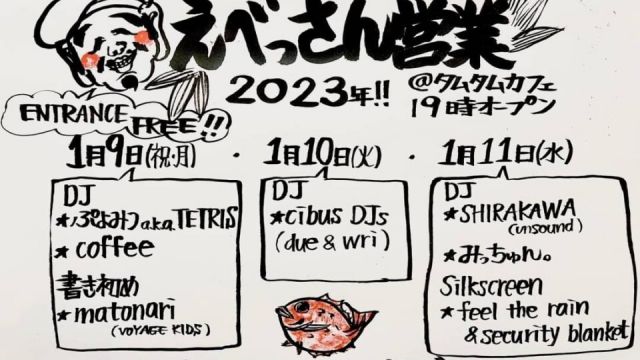 えべっさん営業
2023年!!
@タムタムカフェ
19時オープン
ENTRANCE
FREE!!
1月9日(祝・月)
DJ
★ぷよみつ a.k.a. TETRIS
★coffee
書き初め
★matonari
(VOYAGE KIDS)
・1月10日(火)
DJ
★cibus DJs
(due & wri)
・1月11日(水)
DJ
★SHIRAKAWA
(unsound)
★みっちゅん。
Silkscreen
★feel the rain
& security blanket